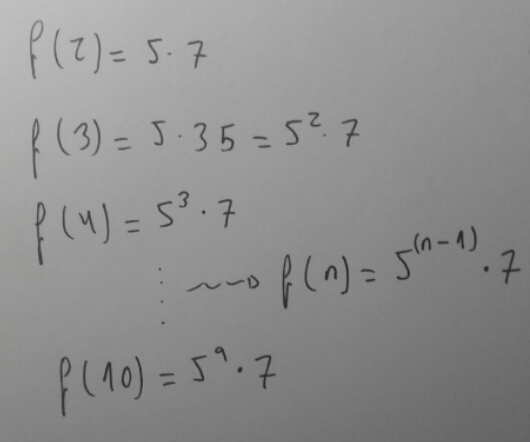 f(2) = 5·7
f(3) = 5·35 = 5²·7
f(4) = 5³·7
⋮ ⇝ f(n) = 5⁽ⁿ⁻¹⁾·7
f(10) = 5⁹·7